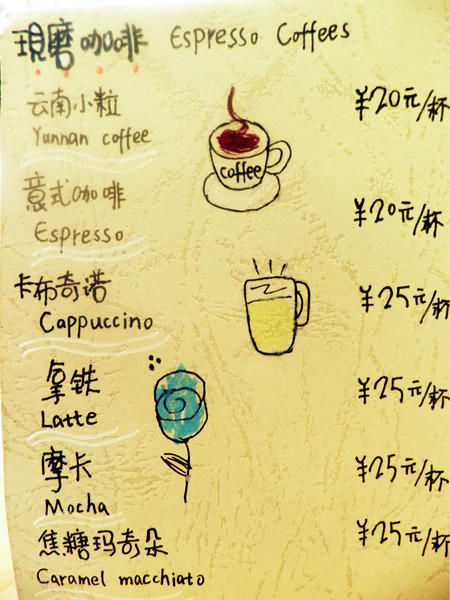 現磨咖啡 Espresso Coffees
云南小粒 ¥20元/杯
Yunnan coffee
coffee
意式咖啡 ¥20元/杯
Espresso
卡布奇诺 ¥25元/杯
Cappuccino
拿铁 ¥25元/杯
Latte
摩卡 ¥25元/杯
Mocha
焦糖玛奇朵 ¥25元/杯
Caramel macchiato